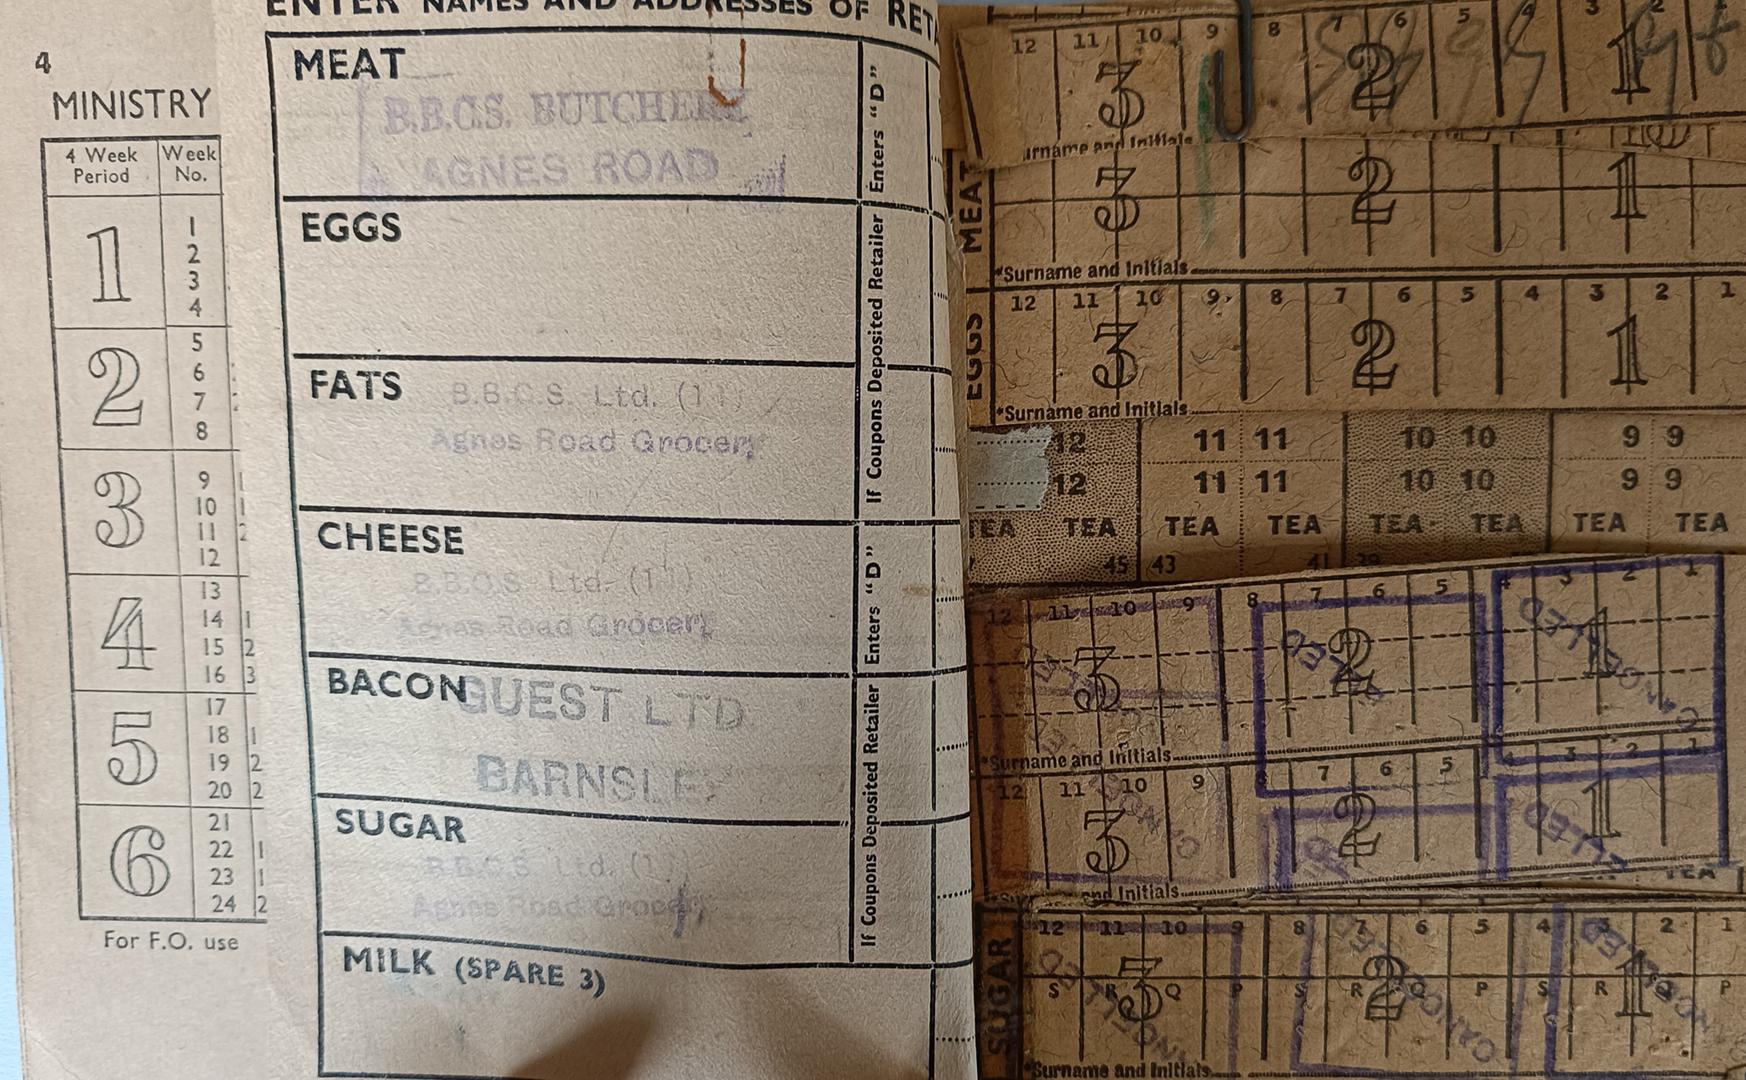 ENTER NAMES AND ADDRESSES OF RETA
4
MINISTRY
4 Week Period
Week No.
1
1
2
3
4
2
5
6
7
8
3
9
10
11
12
4
13
14
15
16
5
17
18
19
20
6
21
22
23
24
For F.O. use
MEAT
B.B.C.S. BUTCHERY
AGNES ROAD
EGGS
FATS
B.B.C.S. Ltd. (11)
Agnes Road Grocery
CHEESE
B.B.C.S. Ltd. (11)
Agnes Road Grocery
BACON
GUEST LTD
BARNSLEY
SUGAR
B.B.C.S. Ltd. (1
Agnes Road Grocery
MILK (SPARE 3)
If Coupons Deposited Retailer Enters "D"
If Coupons Deposited Retailer Enters "D"
12 11 10 9 8 7 6 5 4 3 2 1
3 2 1
urname and Initials
MEAT
3 2 1
*Surname and Initials
EGGS
12 11 10 9 8 7 6 5 4 3 2 1
3 2 1
*Surname and Initials
12 11 11 10 10 9 9
12 11 11 10 10 9 9
TEA TEA TEA TEA TEA TEA TEA TEA
45 43 41 39
12 11 10 9 8 7 6 5 4 3 2 1
3 2 1
CANCELLED
*Surname and Initials
12 11 10 9 7 6 5 4 3 2 1
3 2 1
and Initials
TEA
SUGAR
12 11 10 9 8 7 6 5 4 3 2 1
3 2 1
S R Q P S R Q P S R P
*Surname and Initials